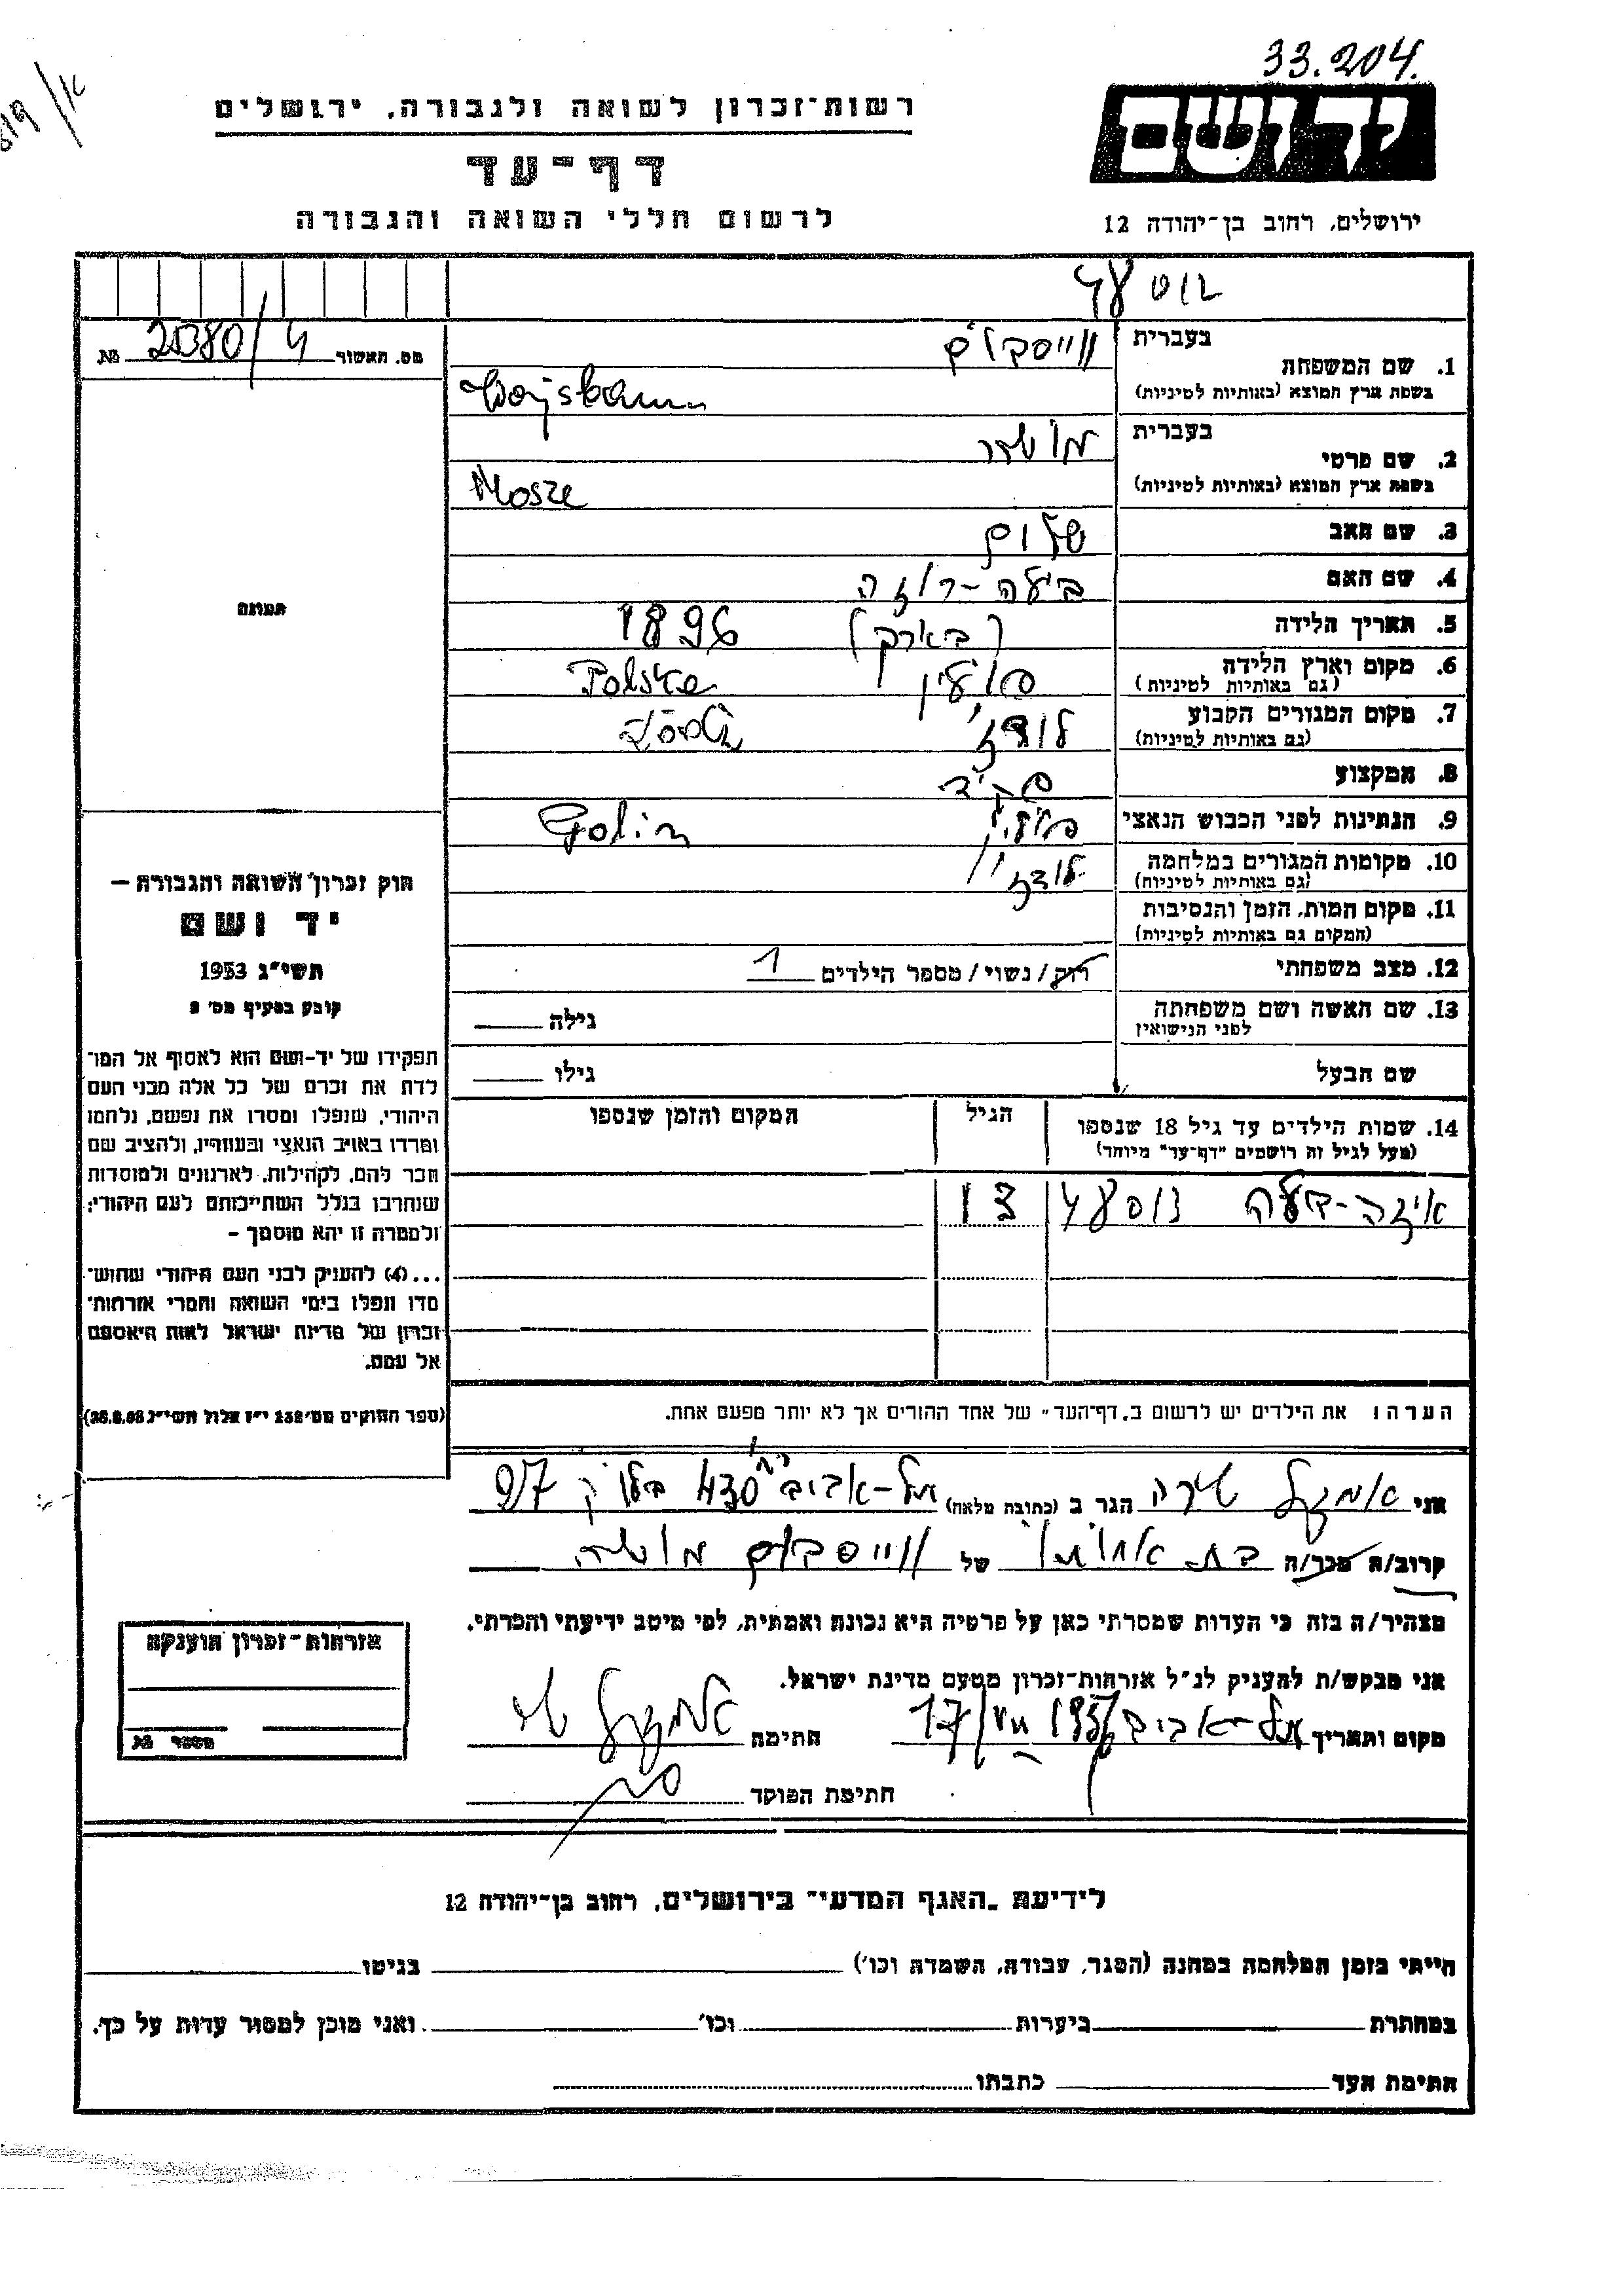 33.204.
רשות־זכרון לשואה ולגבורה, ירושלים
יד ושם
דף־עד
לרשום חללי השואה והגבורה
ירושלים, רחוב בן־יהודה 12
מס. האשור 20380/4 No.
1. שם המשפחה
בעברית
בשפת ארץ המוצא (באותיות לטיניות) Wajsbaum
2. שם פרטי
בעברית
בשפת ארץ המוצא (באותיות לטיניות) Mosze
3. שם האב שלום
4. שם האם
5. תאריך הלידה (בארך) 1896
6. מקום וארץ הלידה פולין Polska
(גם באותיות לטיניות)
7. מקום המגורים הקבוע לודז' Łódź
(גם באותיות לטיניות)
8. המקצוע פקיד
9. הנתינות לפני הכבוש הנאצי
10. מקומות המגורים במלחמה לודז'
(גם באותיות לטיניות)
11. מקום המות, הזמן והנסיבות
(המקום גם באותיות לטיניות)
12. מצב משפחתי רוק/נשוי/מספר הילדים 1
13. שם האשה ושם משפחתה גילה
לפני הנישואין
שם הבעל גילו
14. שמות הילדים עד גיל 18 שנספו הגיל המקום והזמן שנספו
(מעל לגיל זה רושמים "דף־עד" מיוחד)
13
הערה: את הילדים יש לרשום ב„דף־העד" של אחד ההורים אך לא יותר מפעם אחת.
תמונה
חוק זכרון השואה והגבורה –
יד ושם
תשי"ג 1953
קובע בסעיף מס' 2
תפקידו של יד-ושם הוא לאסוף אל המו־
לדת את זכרם של כל אלה מבני העם
היהודי, שנפלו ומסרו את נפשם, נלחמו
ומרדו באויב הנאצי ובעוזריו, ולהציב שם
וזכר להם, לקהילות, לארגונים ולמוסדות
שנחרבו בגלל השתייכותם לעם היהודי;
ולמטרה זו יהא מוסמך –
...(4) להעניק לבני העם היהודי שהוש־
מדו ונפלו בימי השואה והמרי אזרחות־
זכרון של מדינת ישראל לאות היאספם
אל עמם.
אני שירה הגר ב (כתובת מלאה) תל-אביב 430 בלוק 97
קרוב/ה מכר/ה בת אחותו של ווייסבוים משה
מצהיר/ה בזה כי העדות שמסרתי כאן על פרטיה היא נכונה ואמתית, לפי מיטב ידיעתי והכרתי.
אני מבקש/ת להעניק לנ"ל אזרחות־זכרון מטעם מדינת ישראל.
מקום ותאריך תל-אביב חתימה
חתימת הפוקד
אזרחות־זכרון הוענקה
מספר No.
לידיעת „האגף המדעי" בירושלים, רחוב בן־יהודה 12
הייתי בזמן המלחמה במחנה (הסגר, עבודה, השמדה וכו') בגיטו
במחתרת ביערות וכו' ואני מוכן למסור עדות על כך.
חתימת העד כתבתו